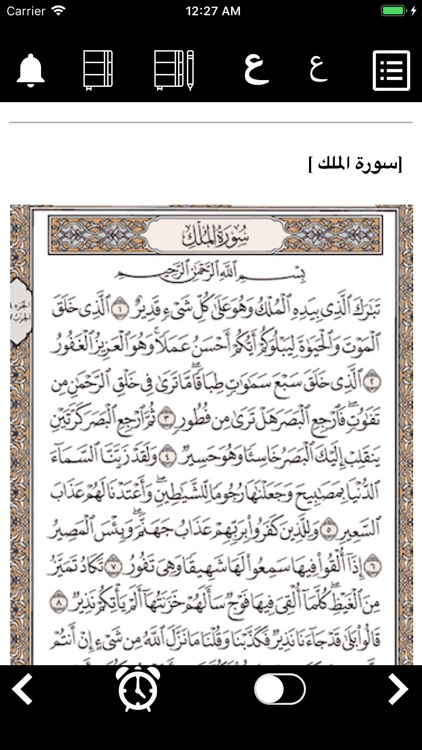 Carrier 12:27 AM
ع ع
[سورة الملك ]
سُورَةُ المُلْكِ
بِسْمِ اللَّهِ الرَّحْمَٰنِ الرَّحِيمِ
تَبَارَكَ الَّذِي بِيَدِهِ الْمُلْكُ وَهُوَ عَلَىٰ كُلِّ شَيْءٍ قَدِيرٌ ١ الَّذِي خَلَقَ
الْمَوْتَ وَالْحَيَوٰةَ لِيَبْلُوَكُمْ أَيُّكُمْ أَحْسَنُ عَمَلًا ۚ وَهُوَ الْعَزِيزُ الْغَفُورُ
٢ الَّذِي خَلَقَ سَبْعَ سَمَٰوَٰتٍ طِبَاقًا ۖ مَّا تَرَىٰ فِي خَلْقِ الرَّحْمَٰنِ مِن
تَفَٰوُتٍ ۖ فَارْجِعِ الْبَصَرَ هَلْ تَرَىٰ مِن فُطُورٍ ٣ ثُمَّ ارْجِعِ الْبَصَرَ كَرَّتَيْنِ
يَنقَلِبْ إِلَيْكَ الْبَصَرُ خَاسِئًا وَهُوَ حَسِيرٌ ٤ وَلَقَدْ زَيَّنَّا السَّمَاءَ
الدُّنْيَا بِمَصَٰبِيحَ وَجَعَلْنَٰهَا رُجُومًا لِّلشَّيَٰطِينِ ۖ وَأَعْتَدْنَا لَهُمْ عَذَابَ
السَّعِيرِ ٥ وَلِلَّذِينَ كَفَرُوا بِرَبِّهِمْ عَذَابُ جَهَنَّمَ ۖ وَبِئْسَ الْمَصِيرُ
٦ إِذَا أُلْقُوا فِيهَا سَمِعُوا لَهَا شَهِيقًا وَهِيَ تَفُورُ ٧ تَكَادُ تَمَيَّزُ
مِنَ الْغَيْظِ ۖ كُلَّمَا أُلْقِيَ فِيهَا فَوْجٌ سَأَلَهُمْ خَزَنَتُهَا أَلَمْ يَأْتِكُمْ نَذِيرٌ ٨
قَالُوا بَلَىٰ قَدْ جَاءَنَا نَذِيرٌ فَكَذَّبْنَا وَقُلْنَا مَا نَزَّلَ اللَّهُ مِن شَيْءٍ إِنْ أَنتُمْ